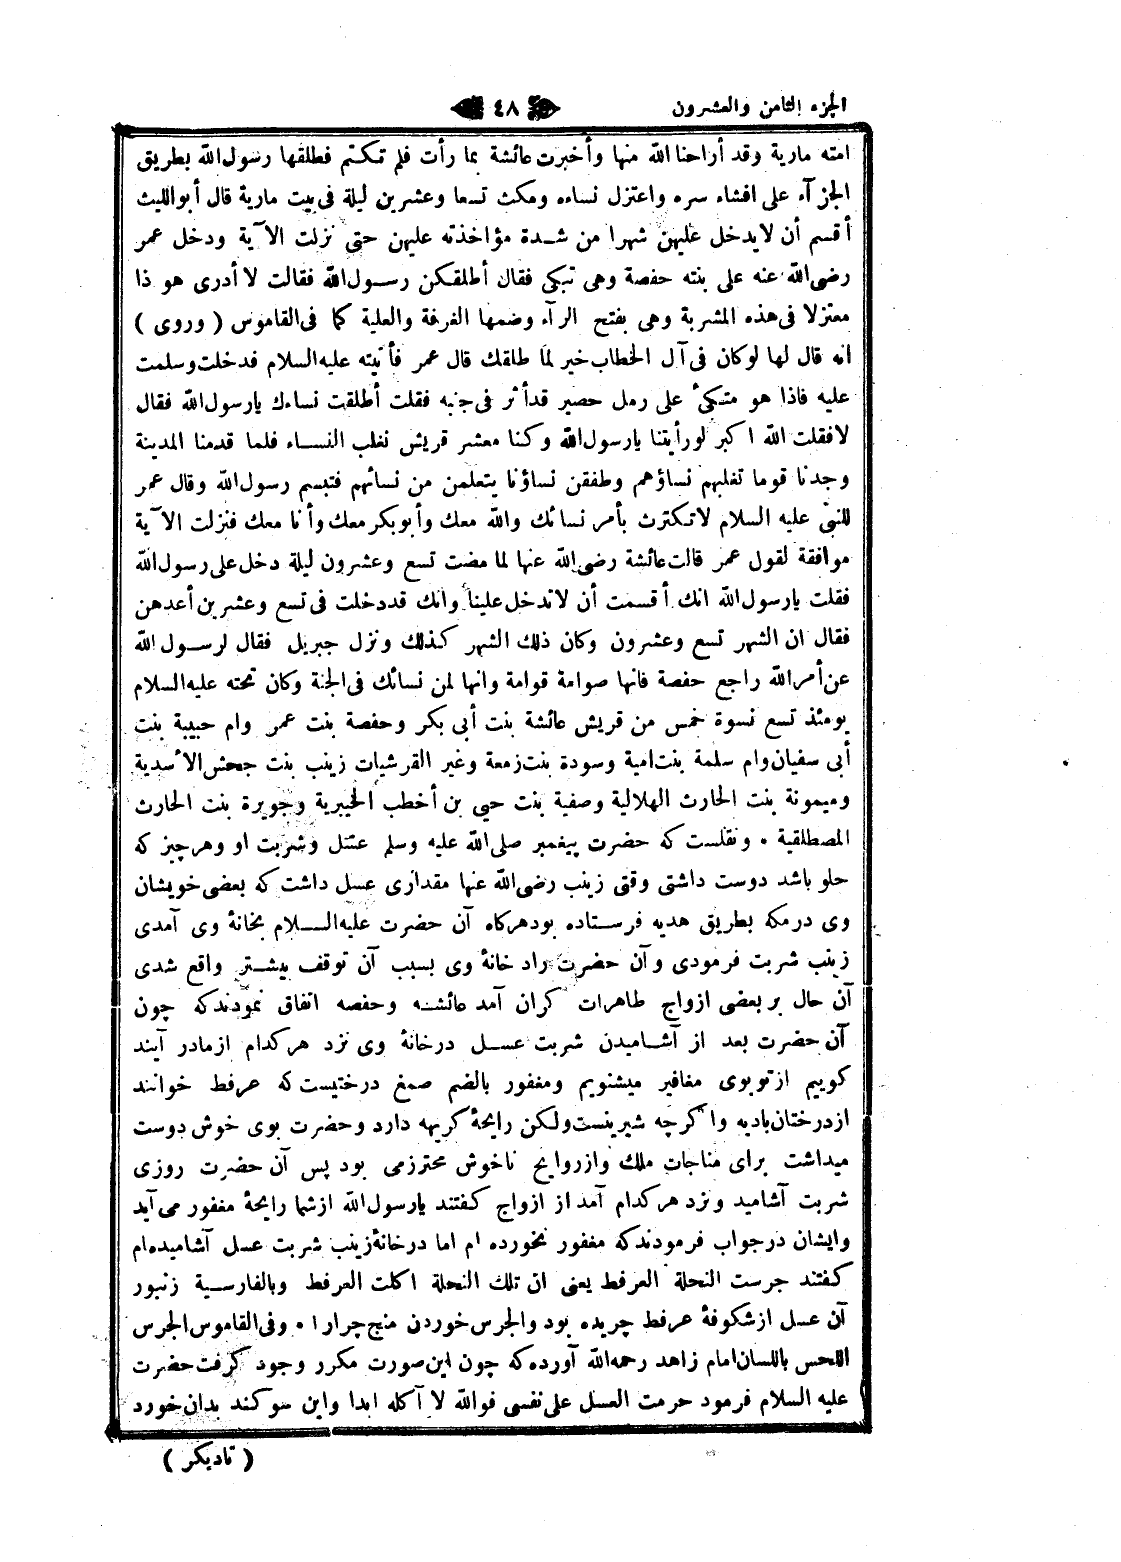 الجزء الثامن والعشرون
٤٨
امته مارية وقد أراحنا الله منها وأخبرت عائشة بما رأت فلم تكتم فطلقها رسول الله بطريق
الجزآء على افشاء سره واعتزل نساءه ومكث تسعا وعشرين ليلة فى بيت مارية قال أبو الليث
أقسم أن لايدخل عليهن شهرا من شدة مؤاخذته عليهن حتى نزلت الآية ودخل عمر
رضى الله عنه على بنته حفصة وهى تبكى فقال أطلقكن رسول الله فقالت لا أدرى هو ذا
معتزلا فى هذه المشربة وهى بفتح الرآء وضمها الغرفة والعلية كما فى القاموس ( وروى )
انه قال لها لوكان فى آل الخطاب خير لما طلقك قال عمر فأتيته عليه السلام فدخلت وسلمت
عليه فاذا هو متكئ على رمل حصير قدأثر فى جنبه فقلت أطلقت نساءك يارسول الله فقال
لافقلت الله اكبر لورأيتنا يارسول الله وكنا معشر قريش نغلب النساء فلما قدمنا المدينة
وجدنا قوما تغلبهم نساؤهم وطفقن نساؤنا يتعلمن من نسائهم فتبسم رسول الله وقال عمر
للنبى عليه السلام لاتكترث بأمر نسائك والله معك وأبوبكر معك وأنا معك فنزلت الآية
موافقة لقول عمر قالت عائشة رضى الله عنها لما مضت تسع وعشرون ليلة دخل على رسول الله
فقلت يارسول الله انك أقسمت أن لاتدخل علينا وانك قددخلت فى تسع وعشرين أعدهن
فقال ان الشهر تسع وعشرون وكان ذلك الشهر كذلك ونزل جبريل فقال لرسول الله
عن أمر الله راجع حفصة فانها صوامة قوامة وانها لمن نسائك فى الجنة وكان تحته عليه السلام
يومئذ تسع نسوة خمس من قريش عائشة بنت أبى بكر وحفصة بنت عمر وام حبيبة بنت
أبى سفيان وام سلمة بنت امية وسودة بنت زمعة وغير القرشيات زينب بنت جحش الأسدية
وميمونة بنت الحارث الهلالية وصفية بنت حيى بن أخطب الخيبرية وجويرة بنت الحارث
المصطلقية • ونقلست كه حضرت پيغمبر صلى الله عليه وسلم عسل وشربت او وهرچيز كه
حلو باشد دوست داشتى وقتى زينب رضى الله عنها مقدارى عسل داشت كه بعضى خويشان
وى درمكه بطريق هديه فرستاده بودهركاه آن حضرت عليه السلام بخانۀ وى آمدى
زينب شربت فرمودى وآن حضرت راد خانۀ وى بسبب آن توقف بيشتر واقع شدى
آن حال بربعضى ازواج طاهرات كران آمد عائشه وحفصه اتفاق نمودندكه چون
آن حضرت بعد از آشاميدن شربت عسل درخانۀ وى نزد هركدام ازمادر آيند
كوييم ازتوبوى مغافير ميشنويم ومغفور بالضم صمغ درختيست كه عرفط خوانند
ازدرختان باديه واكرچه شيرينست ولكن رايحۀ كريهه دارد وحضرت بوى خوش دوست
ميداشت براى مناجات ملك وازروايح ناخوش محترزمى بود پس آن حضرت روزى
شربت آشاميد ونزد هركدام آمد از ازواج كفتند يارسول الله ازشما رايحۀ مغفور مى آيد
وايشان درجواب فرمودندكه مغفور نخورده ام اما درخانۀ زينب شربت عسل آشاميده ام
كفتند جرست النحلة العرفط يعنى ان تلك النحلة اكلت العرفط وبالفارسية زنبور
آن عسل ازشكوفۀ عرفط چريده بود والجرس خوردن منج چرارا • وفى القاموس الجرس
اللحس باللسان امام زاهد رحمه الله آورده كه چون اين صورت مكرر وجود كرفت حضرت
عليه السلام فرمود حرمت العسل على نفسى فوالله لا آكله ابدا واين سوكند بدان خورد
( تاديكر )